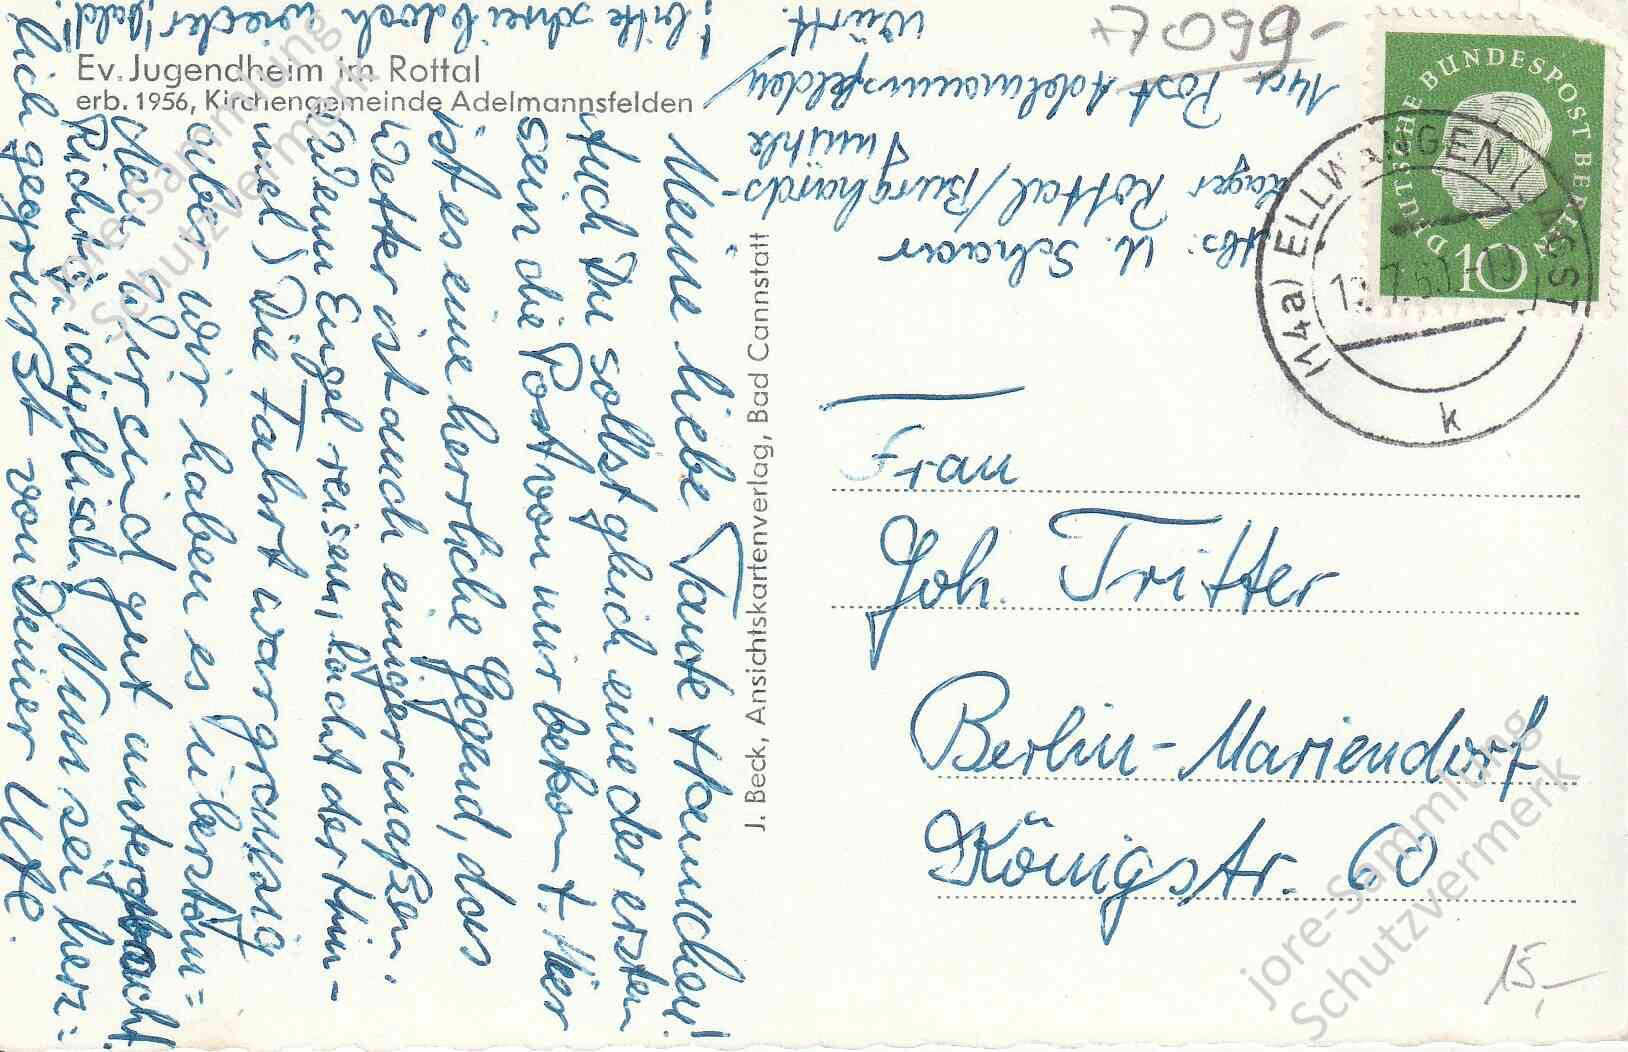 Ev. Jugendheim im Rottal
erb. 1956, Kirchengemeinde Adelmannsfelden
Meine liebe Tante Hannchen!
Auch Du sollst gleich eine der ersten
sein die Post von mir bekommt. Hier
ist es eine herrliche Gegend, das
Wetter ist auch einigermaßen.
(Wenn Engel reisen, lacht der Him-
mel) Die Fahrt war grausig
aber wir haben es überstan=
den. Wir sind gut untergebracht.
Richtig idyllisch. Nun sei herz=
lich gegrüßt von Deiner Ute.
! bitte schreib doch wieder bald!
J. Beck, Ansichtskartenverlag, Bad Cannstatt
Abs: U. Schaar
Lager Rottal/Burghards-
smühle
14a Post Adelmannsfelden/
Württ.
+7099-
DEUTSCHE BUNDESPOST BERLIN
10
(14a) ELLWANGEN (JAGST)
k
Frau
Joh. Tritter
Berlin-Mariendorf
Königstr. 60
15,-
jore-Sammlung
Schutzvermerk
jore-Sammlung
Schutzvermerk